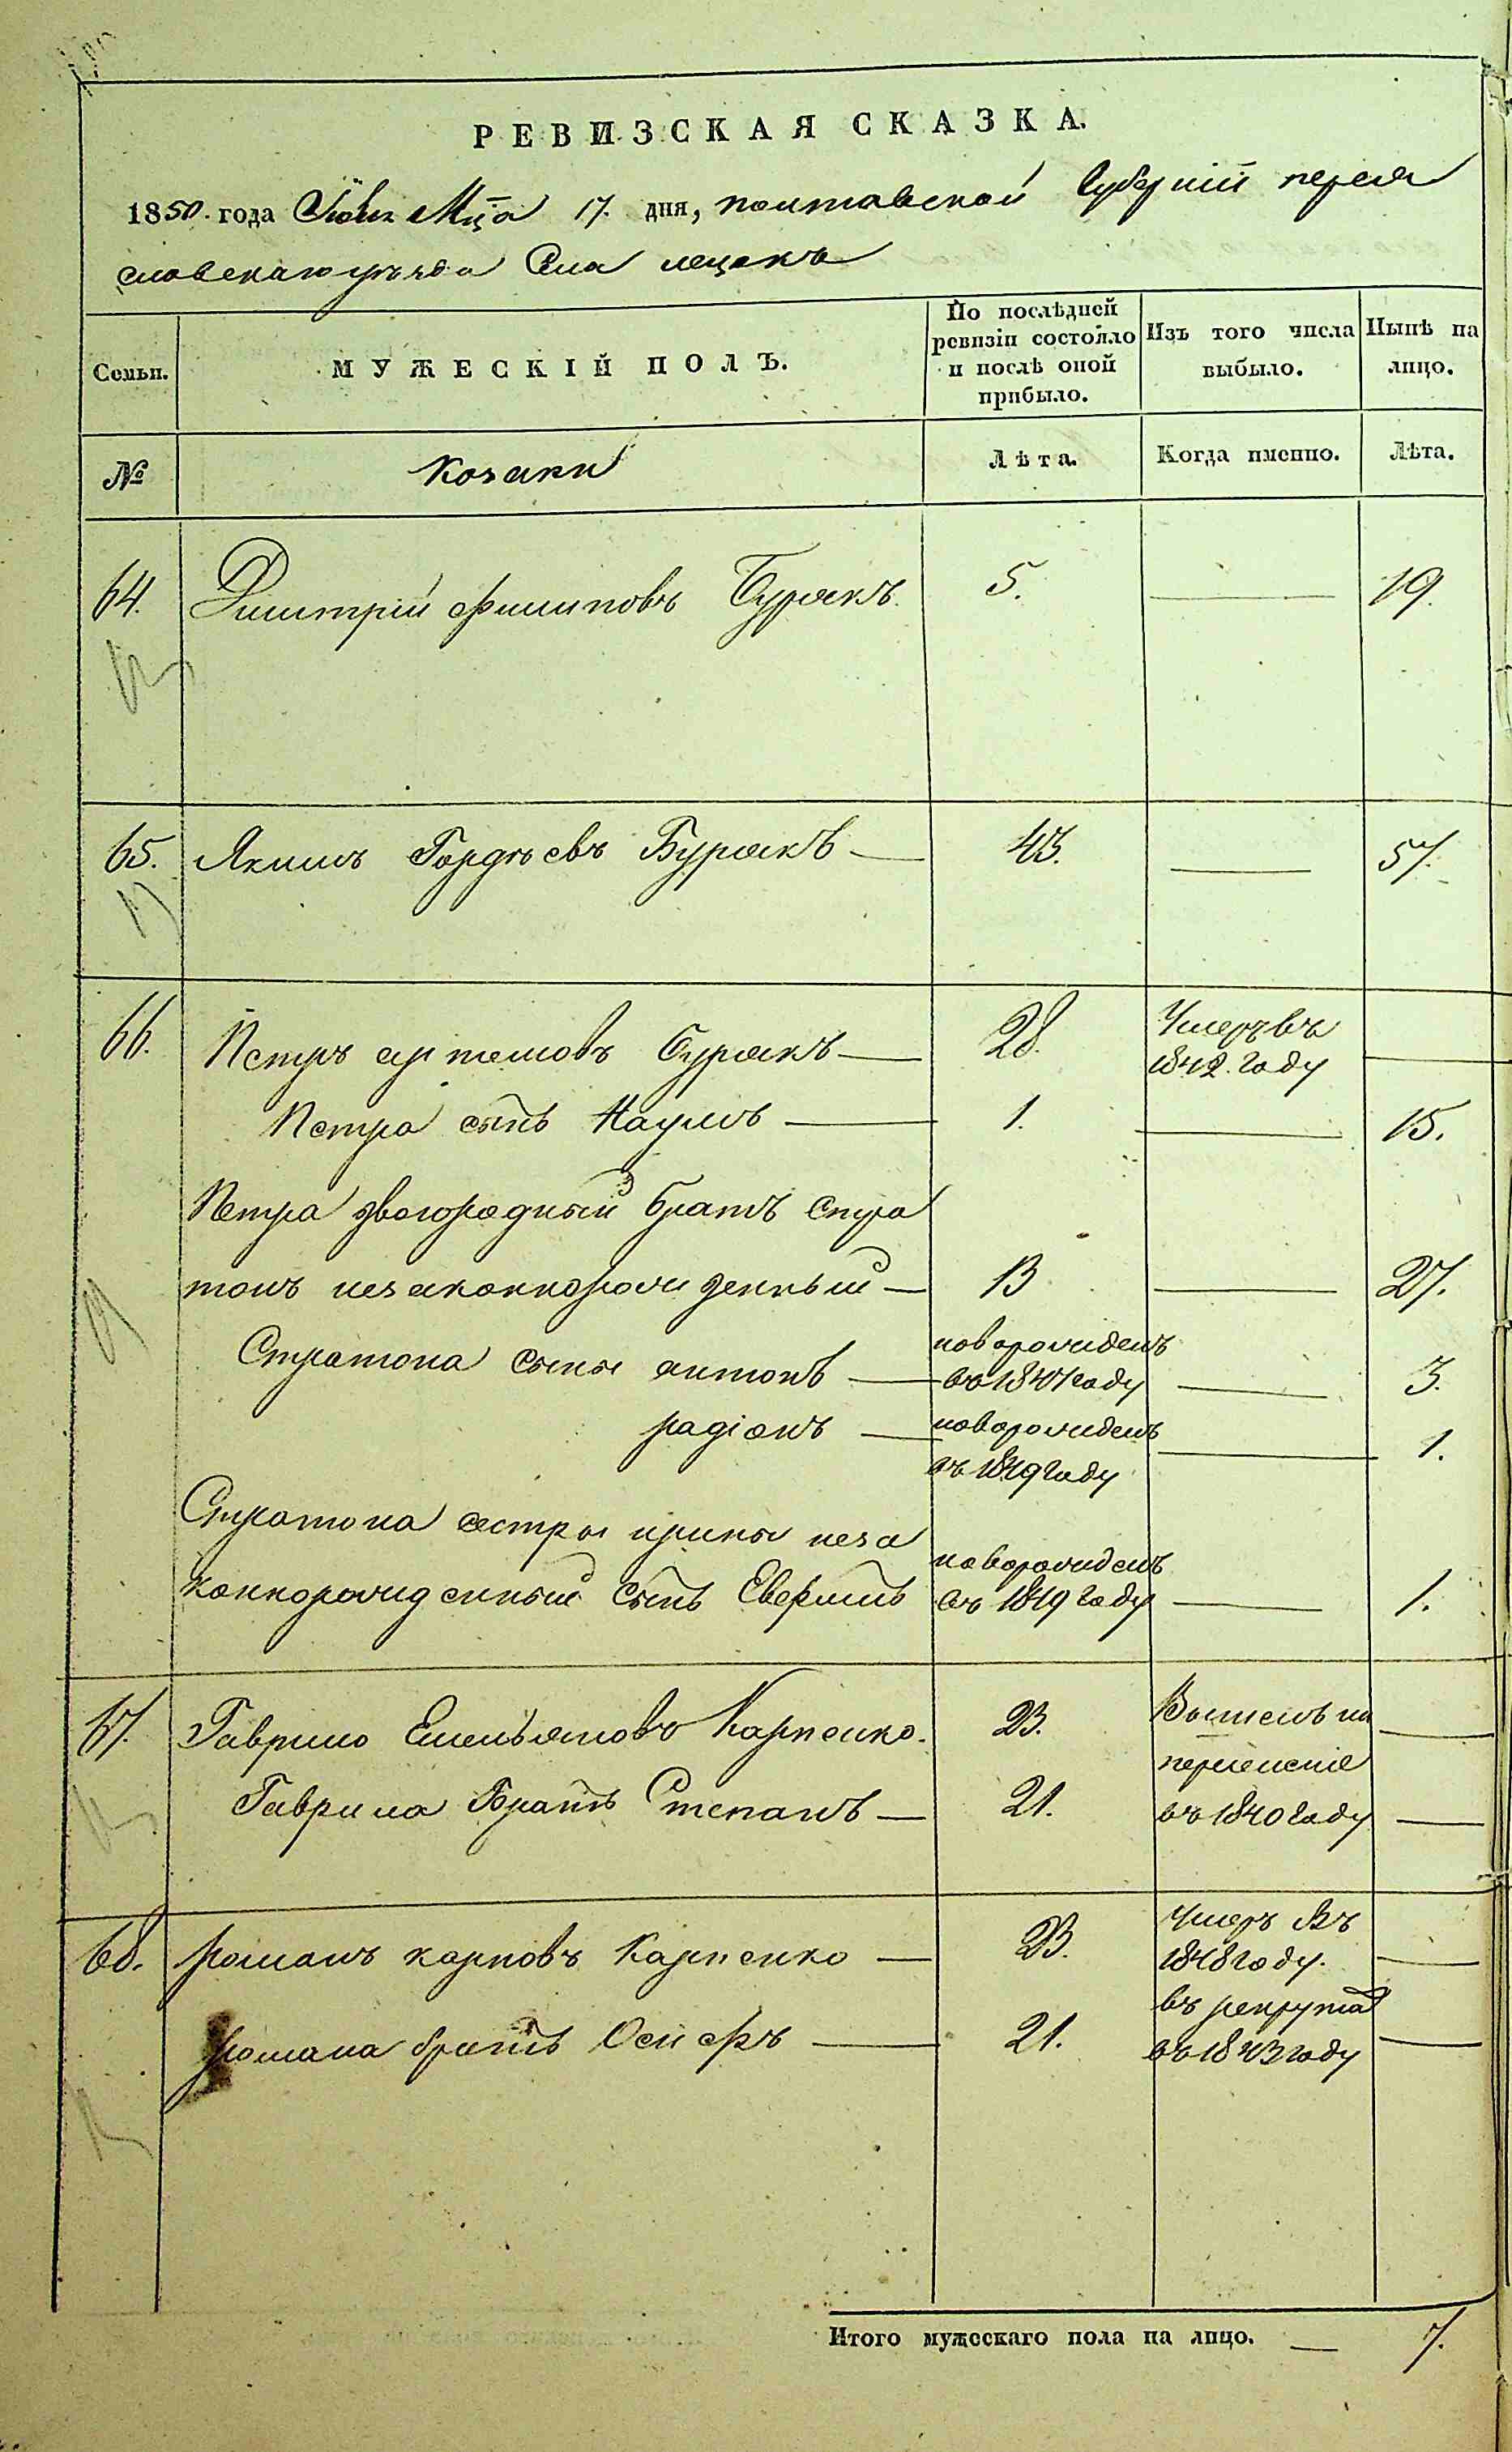 РЕВИЗСКАЯ СКАЗКА.
1850. года Июня Мца 17. дня, полтавской Губерніи переяя
славскаго уѣзда Села лецокъ
Семьи. МУЖЕСКІЙ ПОЛЪ. По послѣдней ревизіи состояло и послѣ оной прибыло. Изъ того числа выбыло. Нынѣ на лицо.
№ Козаки Лѣта. Когда именно. Лѣта.
64. Дмитрій Филиповъ Бурякъ. 5. 19.
65. Якимъ Гордѣевъ Бурякъ 43. 57.
66. Петръ артемовъ бурякъ 28. Умеръ въ 1842. году
Петра сынъ Наумъ 1. 15.
Петра двоюродный братъ Стра
тонъ незаконнорожденный 13 27.
Стратона сыны антонъ новорожденъ въ 1847 году 3.
радіонъ новорожденъ въ 1849 году 1.
Стратона сестры ирины неза
коннорожденный сынъ Евфимъ новорожденъ въ 1849 году 1.
67. Гаврило Емельяновъ Карпенко. 23. Вышелъ на переселеніе
Гаврила Братъ Степанъ 21. въ 1840 году
68. романъ карповъ Карпенко 23. умеръ въ 1848 году.
романа братъ Осифъ 21. въ рекрута въ 1843 году
Итого мужескаго пола на лицо. 7.